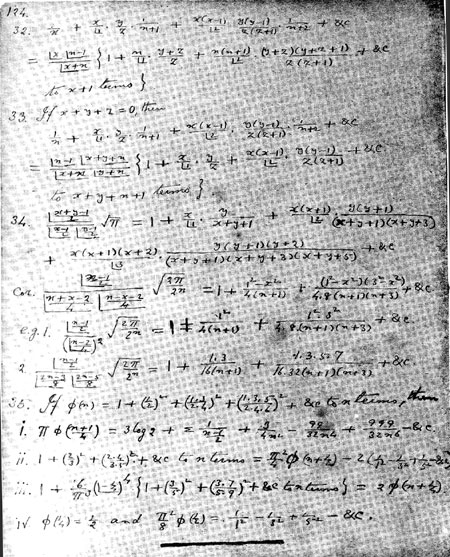 124.
32. 1/n + x/|1 · y/z · 1/(n+1) + x(x-1)/|2 · y(y-1)/z(z+1) · 1/(n+2) + &c
= |x |n-1 / |x+n {1 + n/|1 · (y+z)/z + n(n+1)/|2 · (y+z)(y+z+1)/z(z+1) + &c
to x+1 terms}
33. If x+y+z=0, then
1/n + x/|1 · y/z · 1/(n+1) + x(x-1)/|2 · y(y-1)/z(z+1) · 1/(n+2) + &c
= |n-1 |x+y+n / |x+n |y+n {1 + x/|1 · y/z + x(x-1)/|2 · y(y-1)/z(z+1) + &c
to x+y+n+1 terms}
34. √π = 1 + x/|1 · y/(x+y+1) + x(x+1)/|2 · y(y+1)/(x+y+1)(x+y+3)
+ x(x+1)(x+2)/|3 · y(y+1)(y+2)/(x+y+1)(x+y+3)(x+y+5) + &c
Cor. √(2π/2n) = 1 + (1²-x²)/4(n+1) + (1²-x²)(3²-x²)/4.8(n+1)(n+3) + &c
e.g. 1. √(2π/2n) = 1 + 1²/4(n+1) + 1².3²/4.8(n+1)(n+3) + &c.
2. √(2π/2n) = 1 + 1.3/16(n+1) + 1.3.5.7/16.32(n+1)(n+3) + &c.
35. If φ(n) = 1 + (1/2)² + (1.3/2.4)² + (1.3.5/2.4.6)² + &c to n terms, then
i. π φ(n+1/4) = 3 log 2 +
ii. 1 + (2/3)² + (2.4/3.5)² + &c to n terms = π²/4 φ(n+1/2) - 2(1/1² - 1/3² + 1/5² - &c)
iii. {1 + (3/5)² + (3.7/5.9)² + &c to n terms} = 2 φ(n+1/4).
iv. φ(1/4) = 1/2 and π²/8 φ(1/2) = 1/1² - 1/3² + 1/5² - &c.